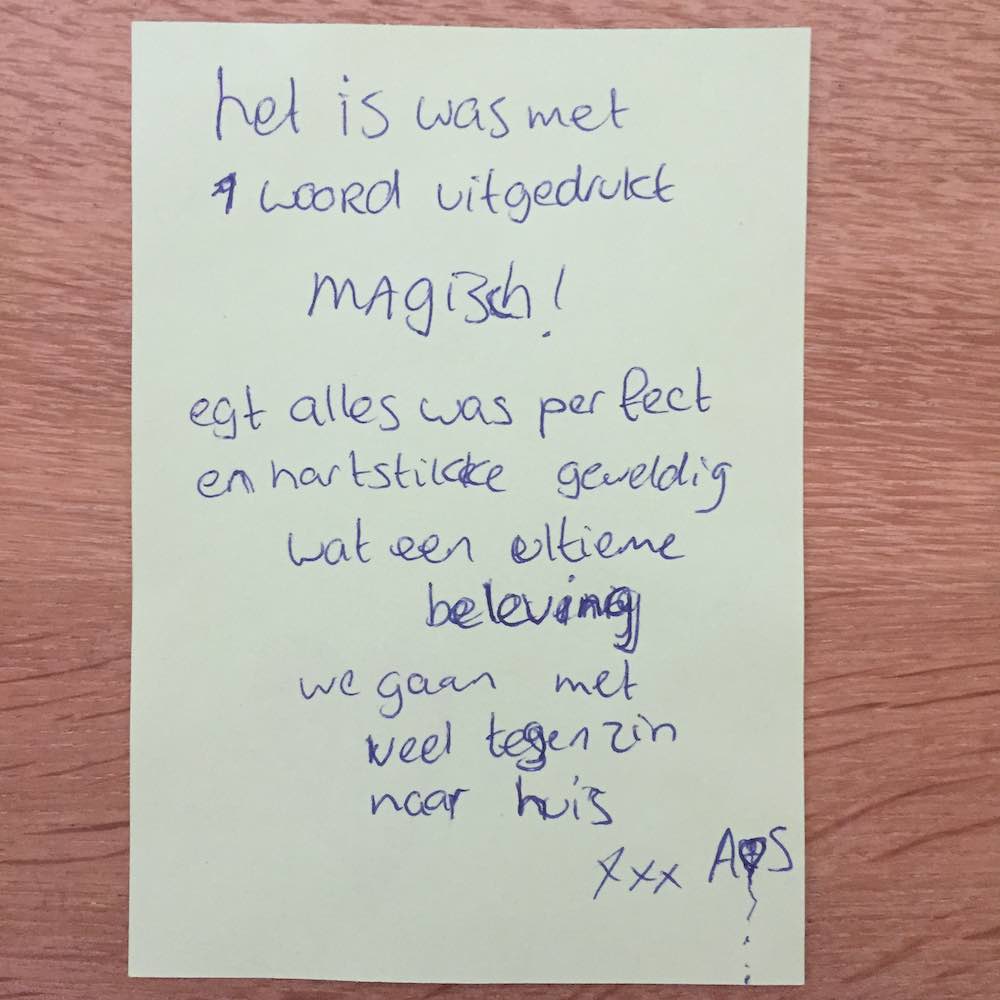 het is was met
1 woord uitgedrukt
MAgisch!
egt alles was perfect
en hartstikke geweldig
wat een ultieme
beleving
we gaan met
veel tegenzin
naar huis
xxx A♥S